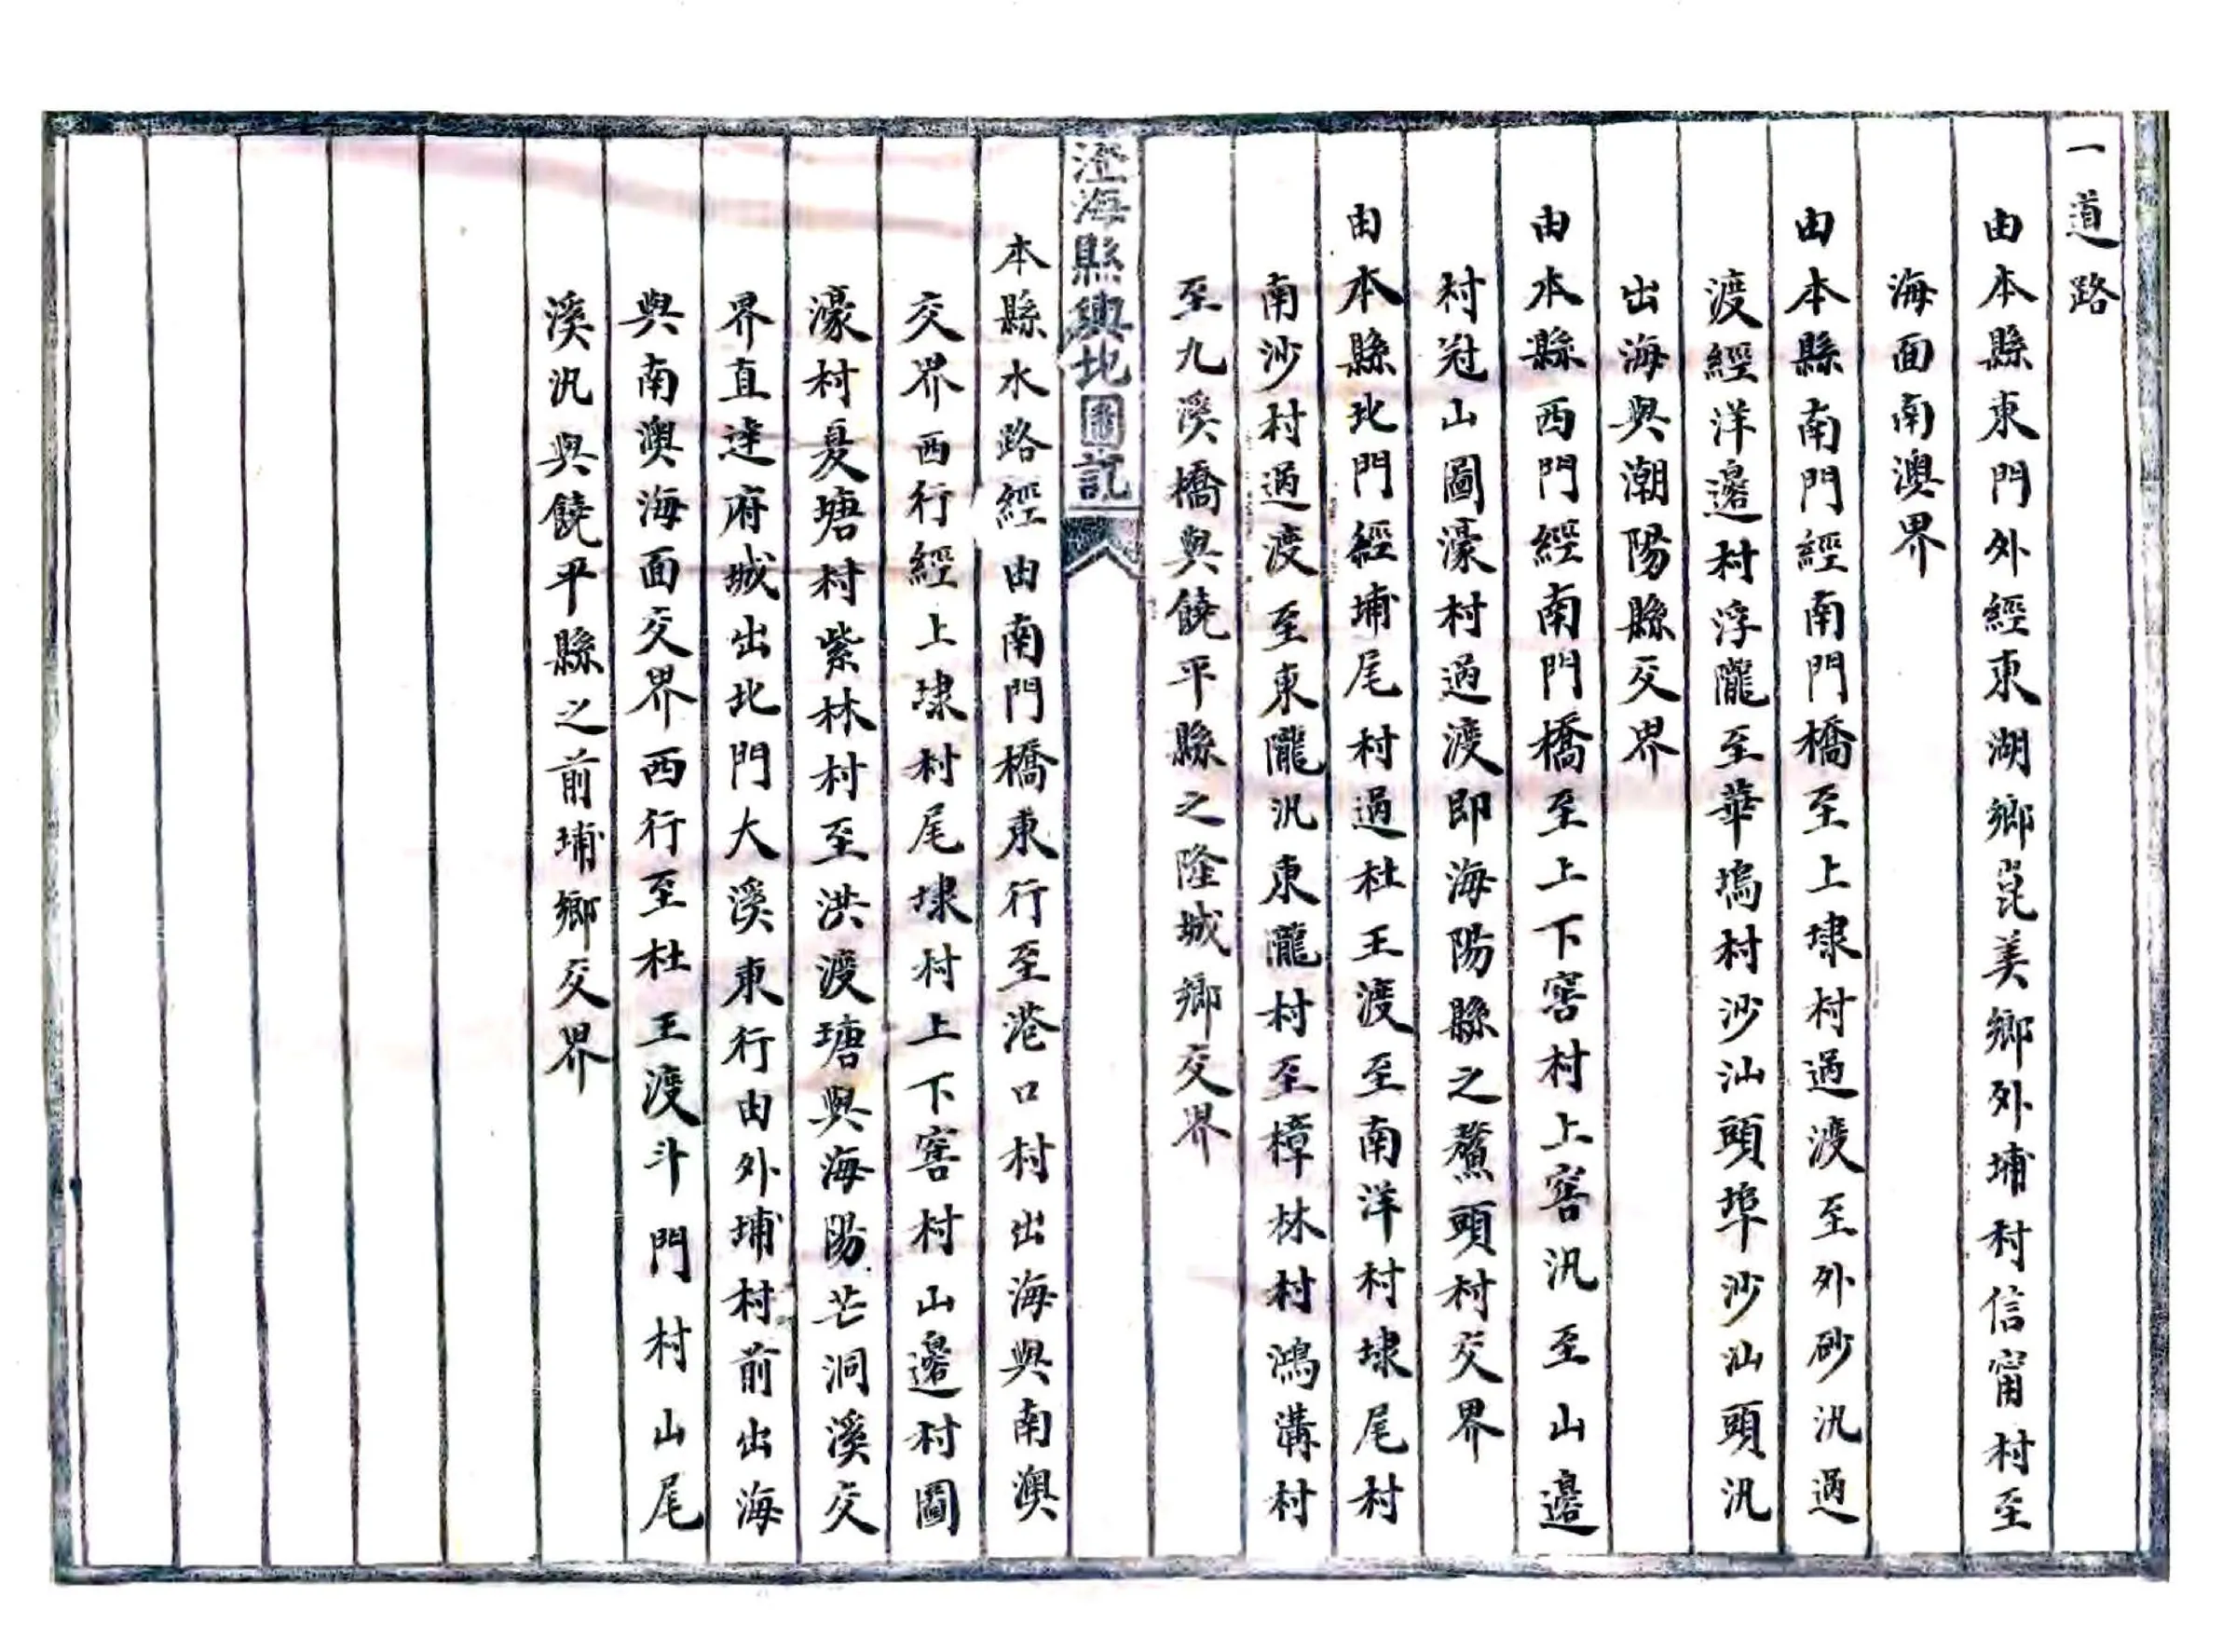 一道路
由本縣東門外經東湖鄉崑美鄉外埔村信甯村至
海面南澳界
由本縣南門經南門橋至上埭村過渡至外砂汛過
渡經洋邊村浮隴至華塢村沙汕頭埠沙汕頭汛
出海與潮陽縣交界
由本縣西門經南門橋至上下窖村上窖汛至山邊
村冠山圖濠村過渡即海陽縣之鰲頭村交界
由本縣北門經埔尾村過杜王渡至南洋村埭尾村
南沙村過渡至東隴汛東隴村至樟林村鴻溝村
至九溪橋與饒平縣之隆城鄉交界
澄海縣輿地圖說
本縣水路經由南門橋東行至港口村出海與南澳
交界西行經上埭村尾埭村上下窖村山邊村圖
濠村夏塘村紫林村至洪渡塘與海陽芒洞溪交
界直達府城出北門大溪東行由外埔村前出海
與南澳海面交界西行至杜王渡斗門村山尾
溪汛與饒平縣之前埔鄉交界